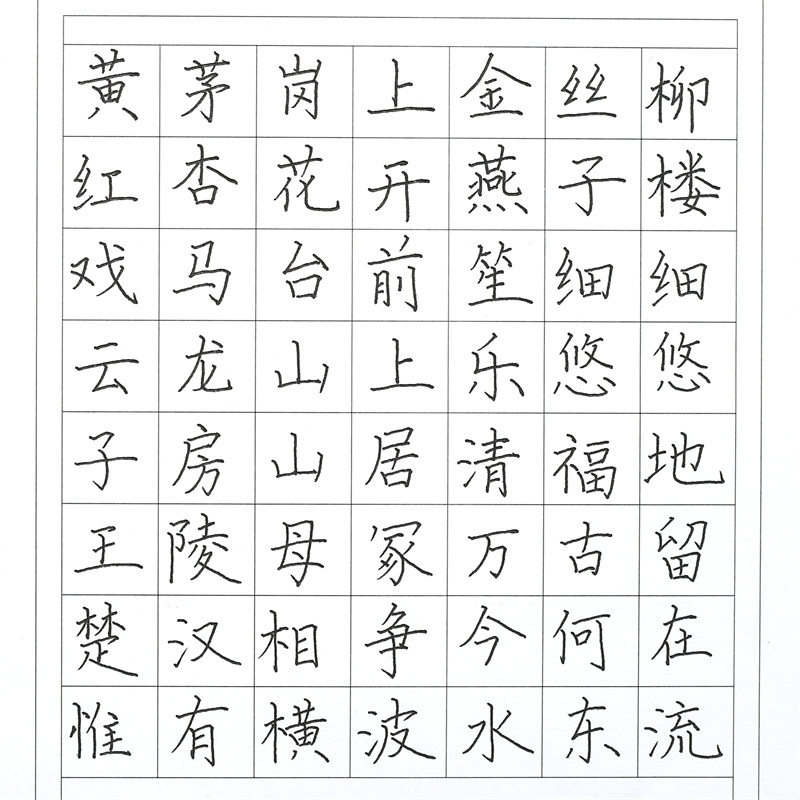 黄茅岗上金丝柳
红杏花开燕子楼
戏马台前笙细细
云龙山上乐悠悠
子房山居清福地
王陵母冢万古留
楚汉相争今何在
惟有横波水东流